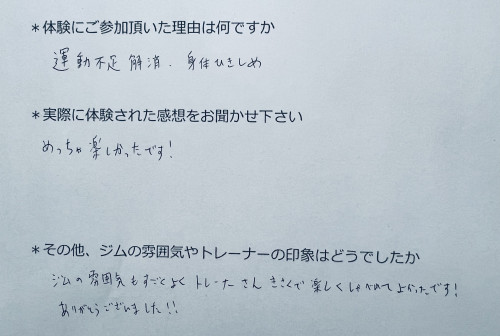 *体験にご参加頂いた理由は何ですか
運動不足解消、身体ひきしめ
*実際に体験された感想をお聞かせ下さい
めっちゃ楽しかったです!
*その他、ジムの雰囲気やトレーナーの印象はどうでしたか
ジムの雰囲気もすごくよくトレーナーさんきさくで楽しくしゃべれてよかったです!
ありがとうございました!!